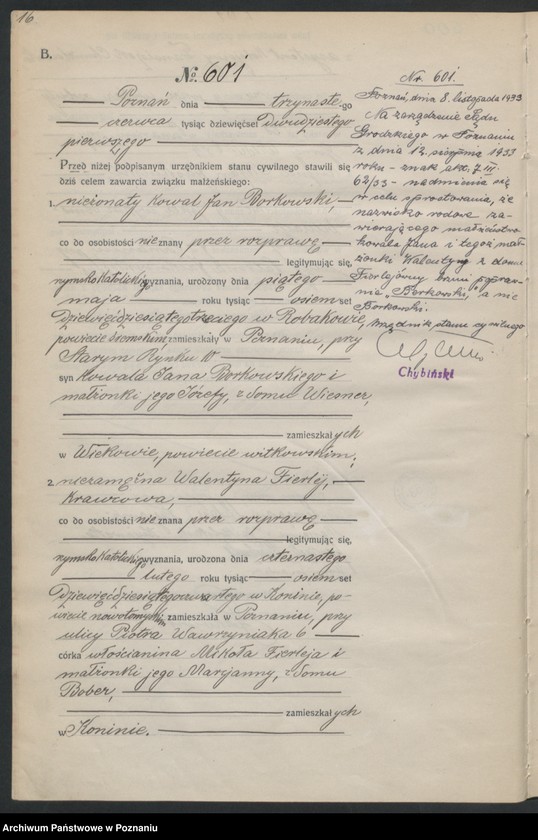 16
B.
№ 601
Poznań dnia trzynastego
czerwca tysiąc dziewięćset dwudziestego
pierwszego
Przed niżej podpisanym urzędnikiem stanu cywilnego stawili się
dziś celem zawarcia związku małżeńskiego:
1. nieżonaty kowal Jan Borkowski,
co do osobistości nieznany przez rozprawę
legitymując się,
rzymsko katolickiego wyznania, urodzony dnia piątego
maja roku tysiąc osiemset
dziewięćdziesiątego trzeciego w Robakowie,
powiecie śremskim, zamieszkały w Poznaniu, przy
Starym Rynku 10
syn kowala Jana Borkowskiego i
małżonki jego Józefy, z domu Wiesner,
zamieszkałych
w Wiekowie, powiecie witkowskim;
2. niezamężna Walentyna Fierlej,
krawcowa,
co do osobistości nieznana przez rozprawę
legitymując się,
rzymsko katolickiego wyznania, urodzona dnia czternastego
lutego roku tysiąc osiemset
dziewięćdziesiątego czwartego w Koninie, po-
wiecie nowotomyskim, zamieszkała w Poznaniu, przy
ulicy Piotra Wawrzyniaka 6
córka włościanina Mikołaja Fierleja i
małżonki jego Marjanny, z domu
Bober,
zamieszkałych
w Koninie.
Nr. 601.
Poznań, dnia 8. listopada 1933
Na zarządzenie Sądu
Grodzkiego w Poznaniu
z dnia 12. sierpnia 1933
roku - znak akt. 7 III
62/33 - nadmienia się
w celu sprostowania, że
nazwisko rodowe za-
wierającego małżeństwo
kowala Jana i tegoż mał-
żonki Walentyny z domu
Fierlejówny brzmi popraw-
nie "Berkowski," a nie
Borkowski.
Urzędnik stanu cywilnego
Chybiński
Archiwum Państwowe w Poznaniu